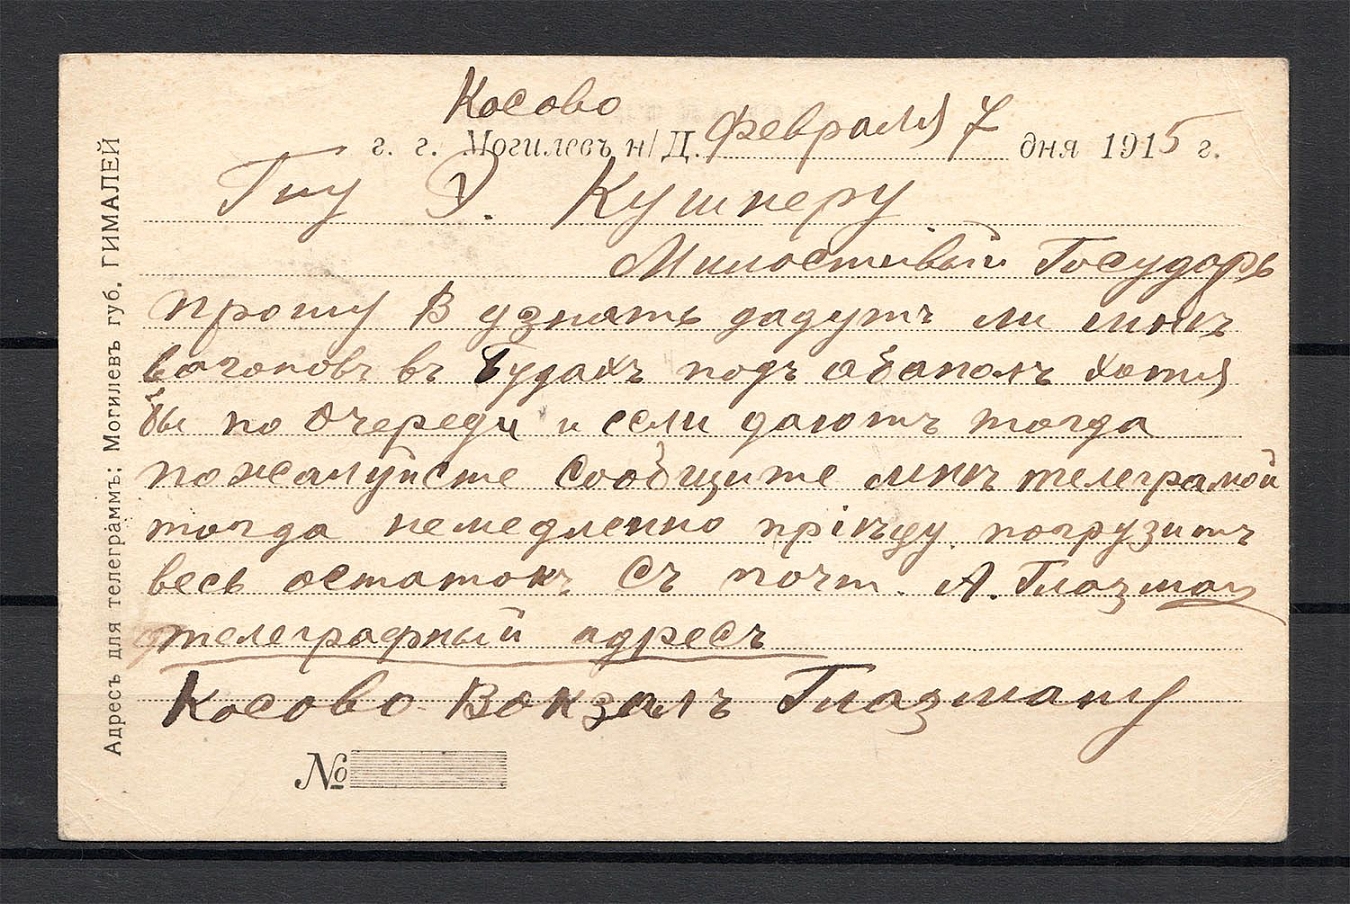 Косово
г. г. Могилевъ н/Д. Февраля 7 дня 1915 г.
Гну Э. Кушнеру
Милостивый Государь
прошу В узнать дадутъ ли мнѣ
вагоновъ въ Будахъ подъ обаполъ хотя
бы по очереди и если даютъ тогда
пожалуйсте сообщите мнѣ телеграмой
тогда немедленно пріѣду погрузить
весь остатокъ Съ почт. А. Глазман
телеграфный адресъ
Косово-Вокзалъ Глазману
№
Адресъ для телеграммъ: Могилевъ губ. ГИМАЛЕЙ